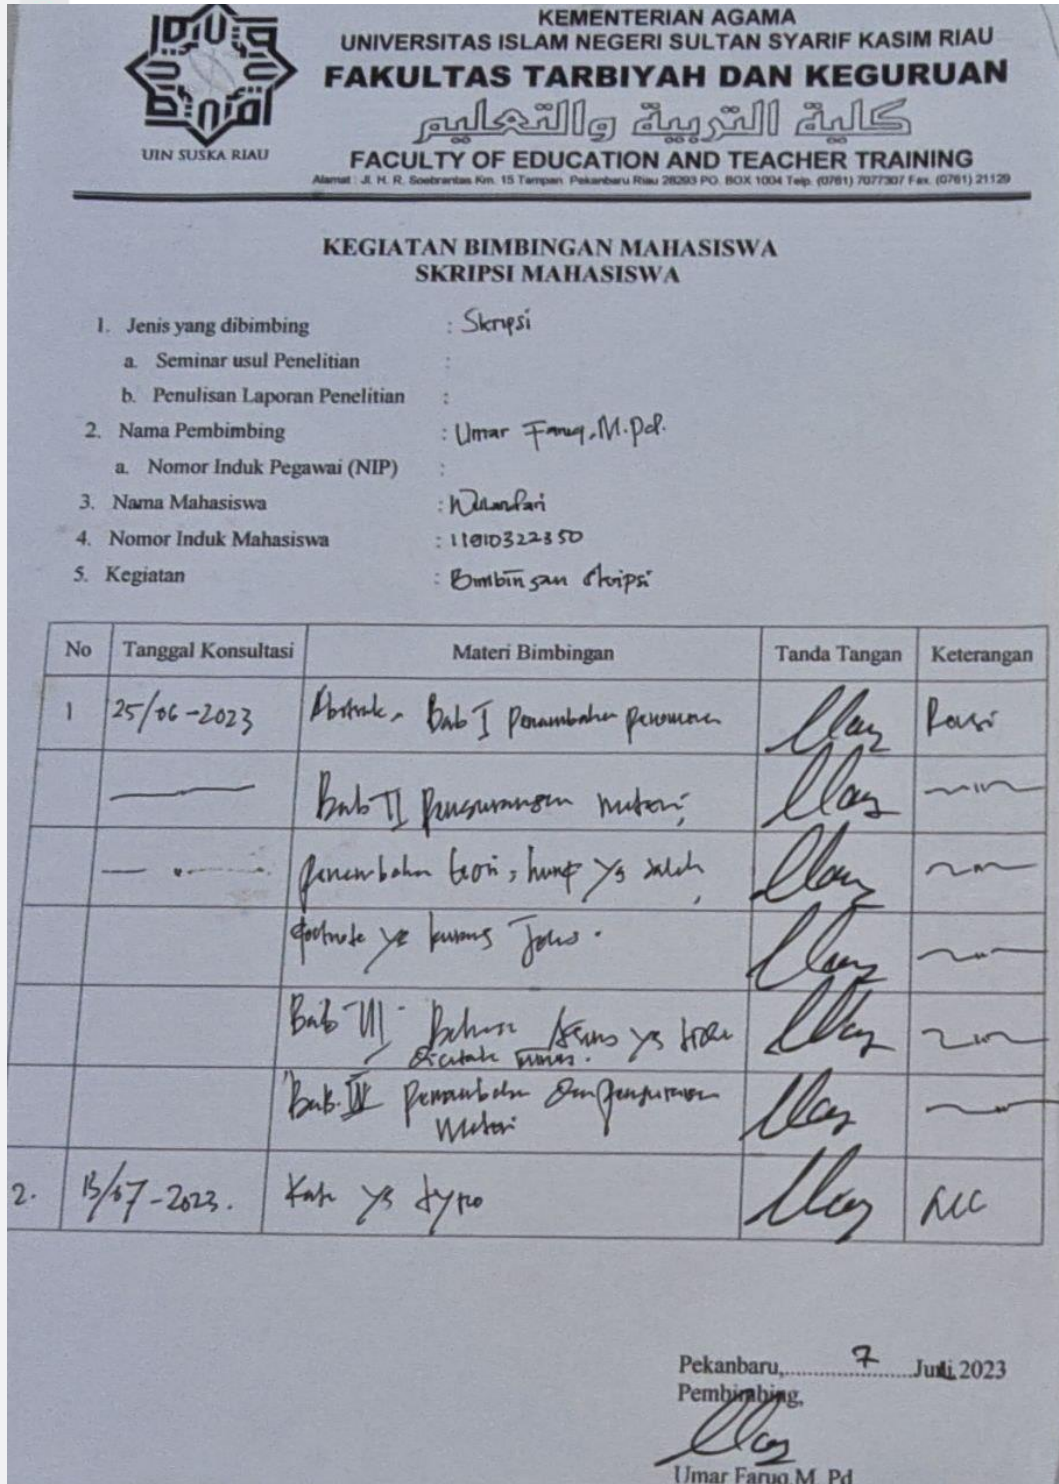 KEMENTERIAN AGAMA
UNIVERSITAS ISLAM NEGERI SULTAN SYARIF KASIM RIAU
FAKULTAS TARBIYAH DAN KEGURUAN
كلية التربية والتعليم
UIN SUSKA RIAU
FACULTY OF EDUCATION AND TEACHER TRAINING
Alamat : Jl. H. R. Soebrantas Km. 15 Tampan Pekanbaru Riau 28293 PO. BOX 1004 Telp. (0761) 7077307 Fax. (0761) 21129
KEGIATAN BIMBINGAN MAHASISWA
SKRIPSI MAHASISWA
1. Jenis yang dibimbing : Skripsi
a. Seminar usul Penelitian :
b. Penulisan Laporan Penelitian :
2. Nama Pembimbing : Umar Faruq, M.Pd.
a. Nomor Induk Pegawai (NIP) :
3. Nama Mahasiswa : Wulandari
4. Nomor Induk Mahasiswa : 11810322350
5. Kegiatan : Bimbingan Skripsi
No Tanggal Konsultasi Materi Bimbingan Tanda Tangan Keterangan
1 25/06-2023 Abstrak, Bab I penambahan Revisi
Bab II pengurangan materi,
penambahan teori, huruf yg salah,
footnote yg kurang
Bab III Bahasa yg tidak
dicetak miring.
Bab. IV penambahan dan pengurangan
materi
2. 13/07-2023. Kata yg typo ACC
Pekanbaru, 7 Juli 2023
Pembimbing,
Umar Faruq M. Pd